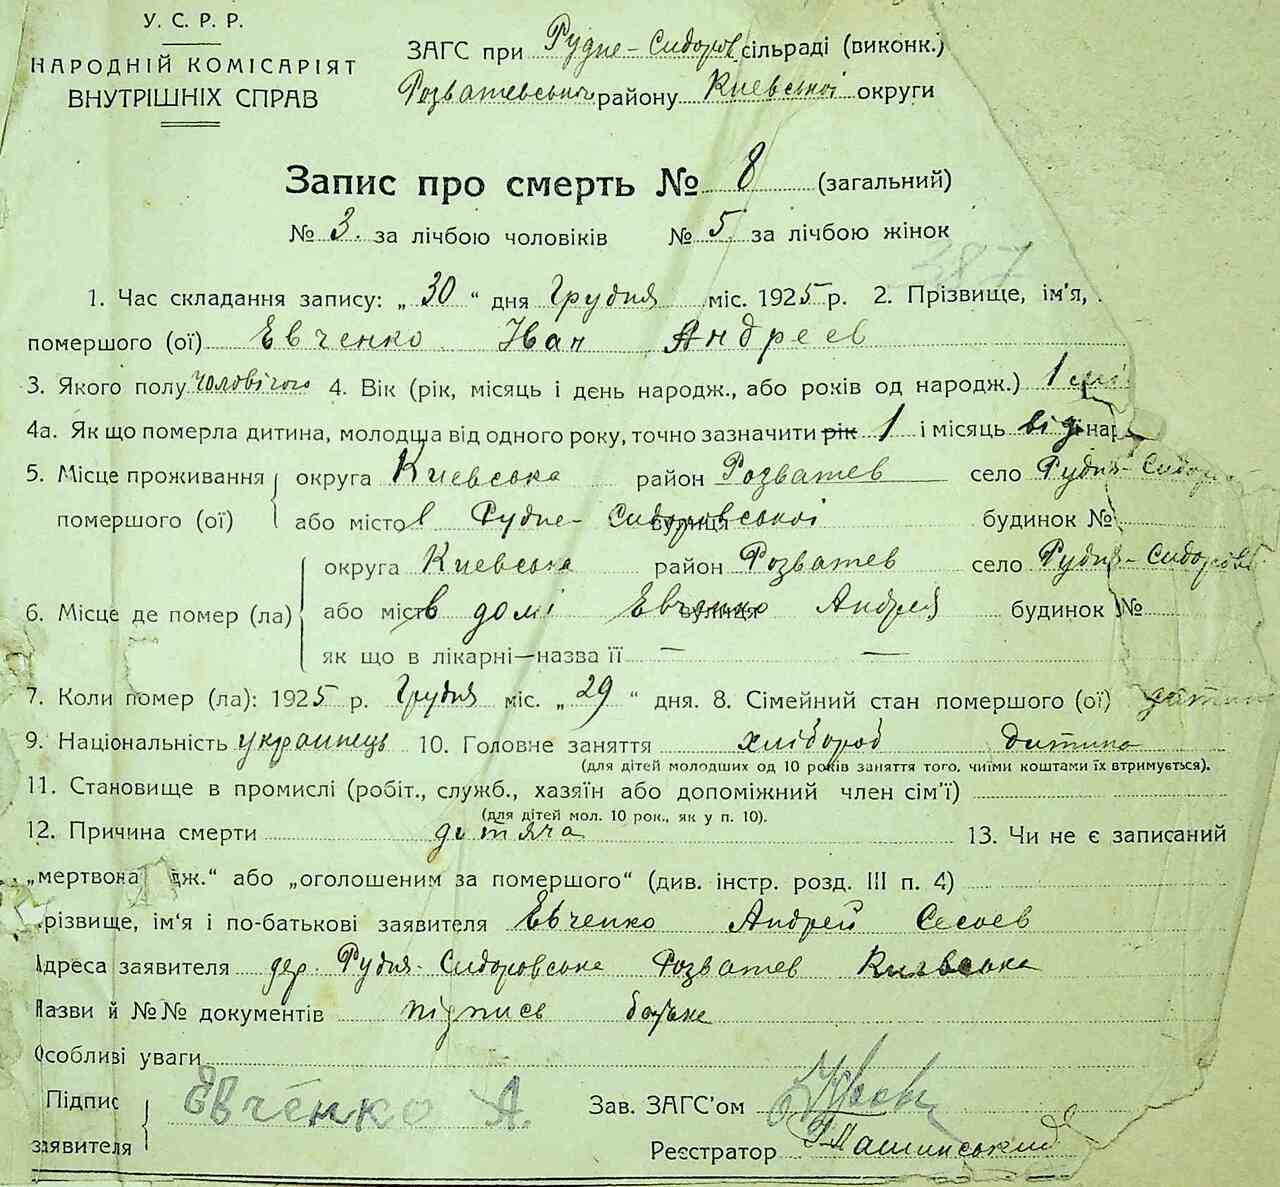 У. С. Р. Р.
НАРОДНІЙ КОМІСАРІЯТ
ВНУТРІШНІХ СПРАВ
ЗАГС при Рудне-Сидоров сільраді (виконк.)
Розватевської району Киевської округи
Запис про смерть № 8 (загальний)
№ 3. за лічбою чоловіків № 5. за лічбою жінок
387
1. Час складання запису: „30“ дня Грудня міс. 1925 р. 2. Прізвище, ім'я,
помершого (ої) Евченко Іван Андреев
3. Якого полу чоловічого 4. Вік (рік, місяць і день народж., або років од народж.) 1
4а. Як що померла дитина, молодша від одного року, точно зазначити рік 1 і місяць від нар
5. Місце проживання округа Киевська район Розватев село Рудня-Сидоров
помершого (ої) або місто в Рудне-Сидоровської вулиця будинок №
округа Киевська район Розватев село Рудня-Сидоров
6. Місце де помер (ла) або міст в домі Евченко вулиця Андрея будинок №
як що в лікарні—назва її — —
7. Коли помер (ла): 1925 р. Грудня міс. „29“ дня. 8. Сімейний стан помершого (ої) дитина
9. Національність украинець 10. Головне заняття хлібороб дитина
(для дітей молодших од 10 років заняття того, чиїми коштами їх втримується).
11. Становище в промислі (робіт., служб., хазяїн або допоміжний член сім'ї)
(для дітей мол. 10 рок., як у п. 10).
12. Причина смерти дитяча 13. Чи не є записаний
„мертвона дж.“ або „оголошеним за помершого“ (див. інстр. розд. III п. 4)
різвище, ім'я і по-батькові заявителя Евченко Андрей
Адреса заявителя дер. Рудня-Сидоровська Розватев Киевська
Назви й №№ документів підпись батьке
Особливі уваги
Підпис заявителя Евченко А.
Зав. ЗАГС'ом
Реєстратор